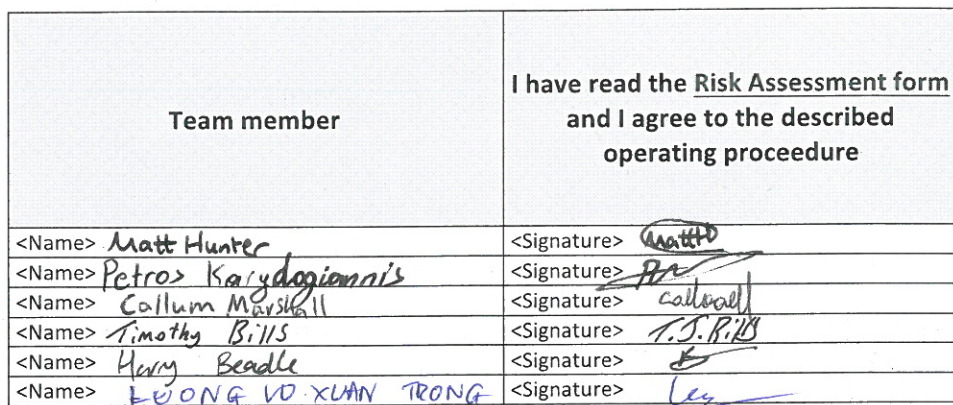 Team member
I have read the Risk Assessment form
and I agree to the described
operating proceedure
<Name> Matt Hunter <Signature> MattH
<Name> Petros Karydogiannis <Signature>
<Name> Callum Marshall <Signature>
<Name> Timothy Bills <Signature> T.J.Bills
<Name> Harry Beadle <Signature>
<Name> LUONG VO XUAN TRONG <Signature>